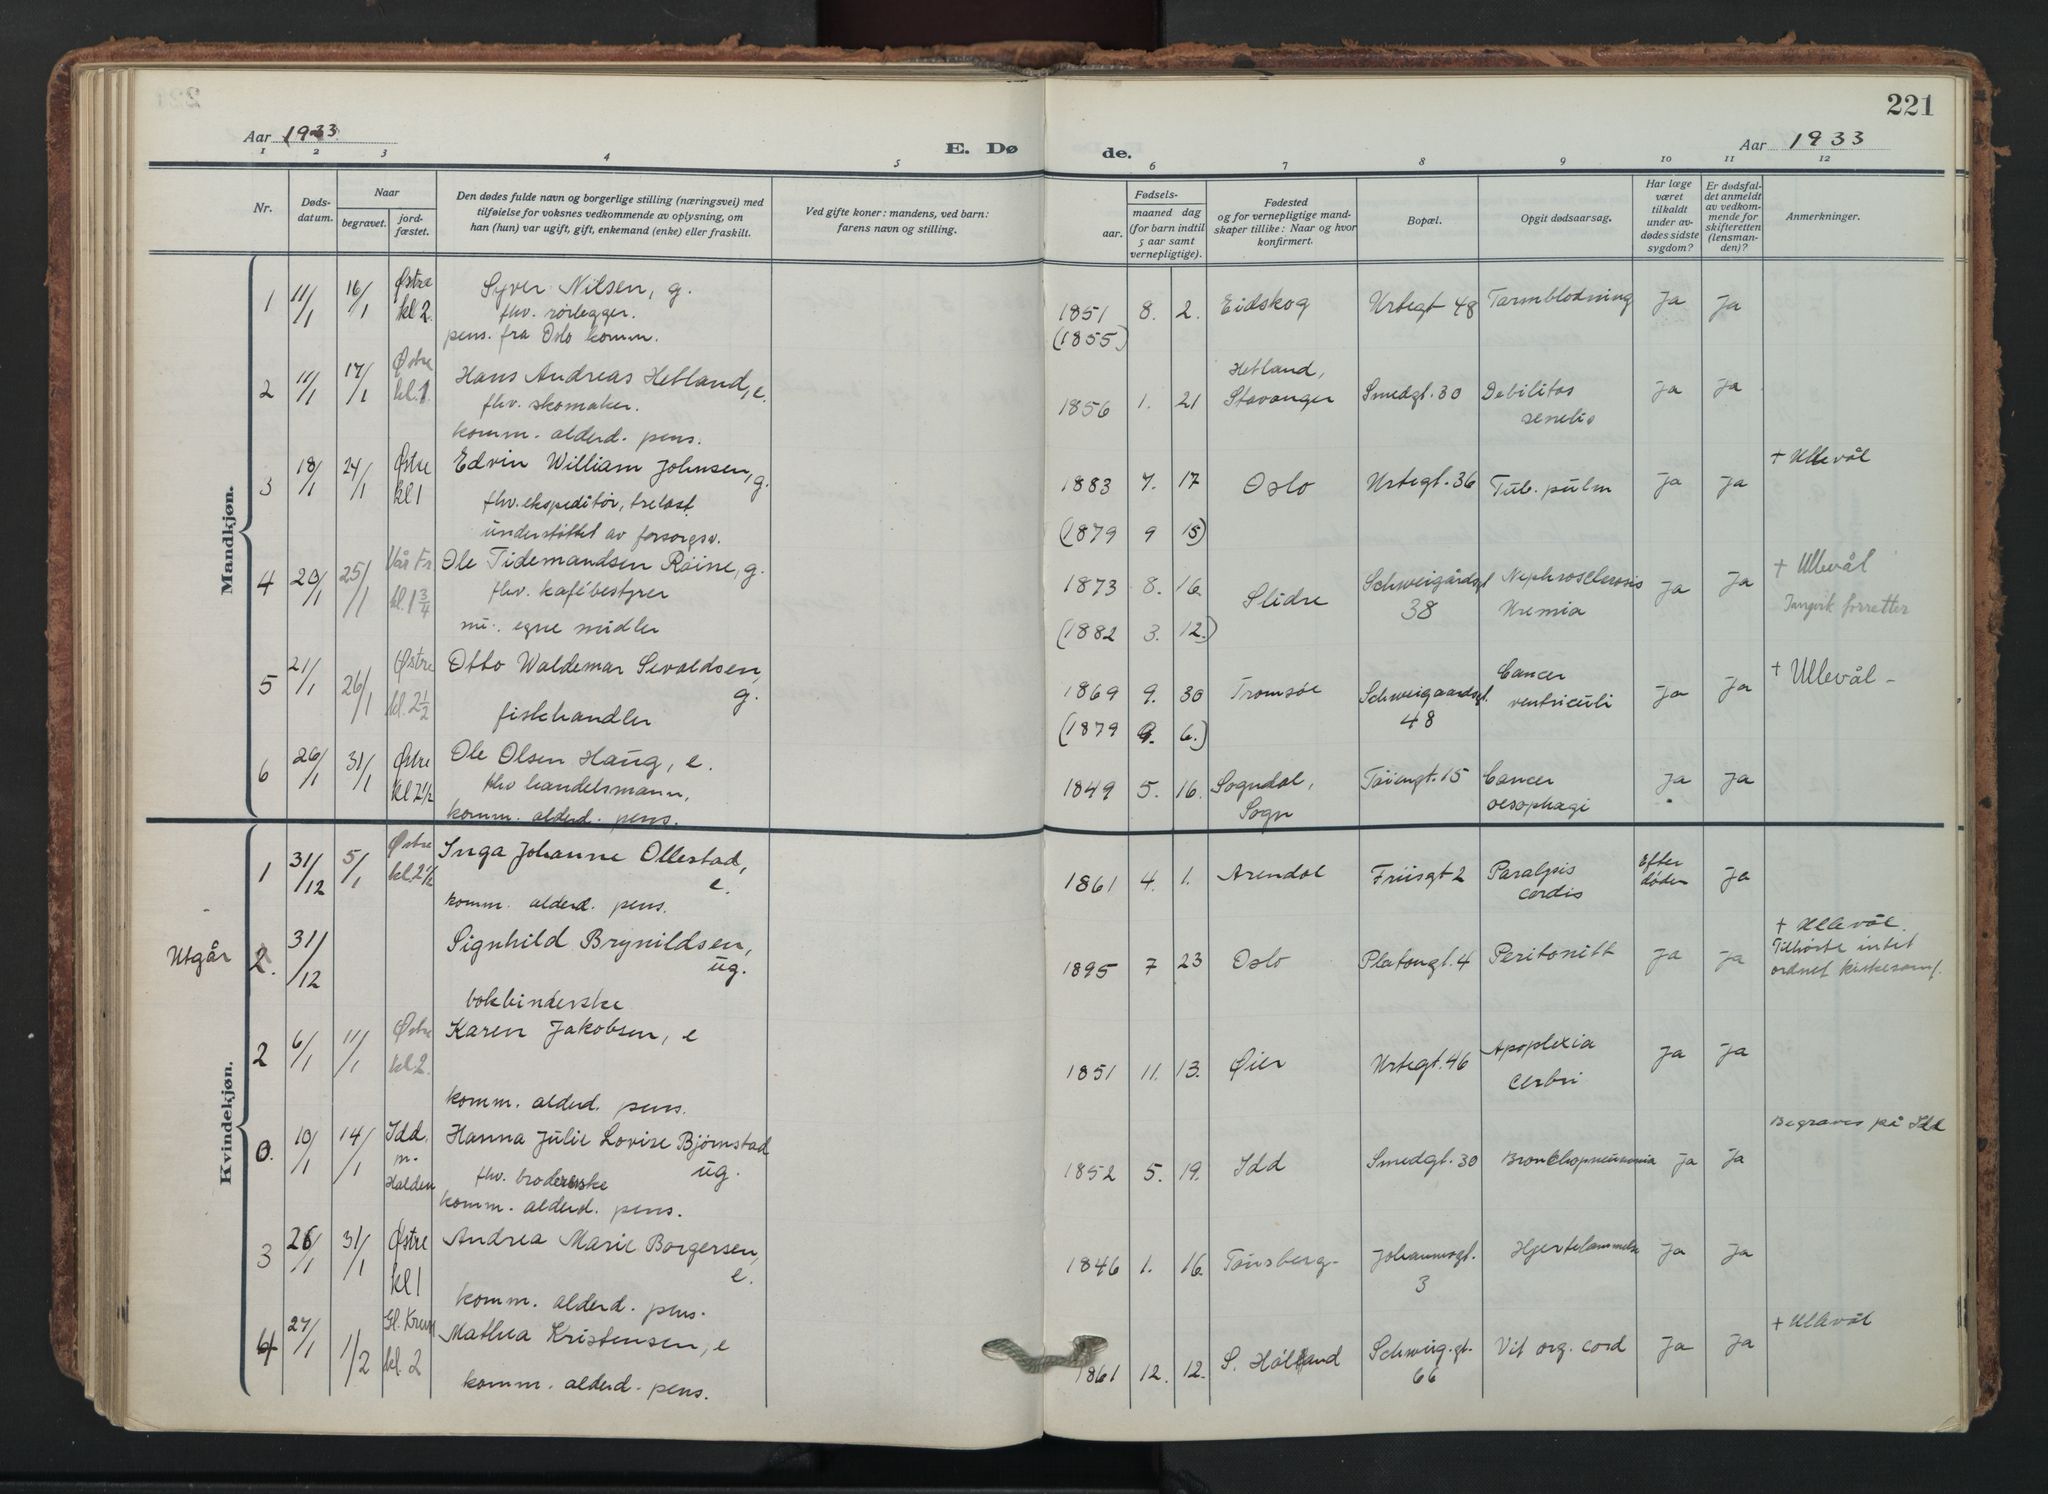 221
Aar 1933.
E. Dø
de.
Aar 1933
1 2 3 4 5 6 7 8 9 10 11 12
Nr.
Døds-
datum.
Naar
begravet.
jord-
fæstet.
Den dødes fulde navn og borgerlige stilling (næringsvei) med
tilføielse for voksnes vedkommende av oplysning, om
han (hun) var ugift, gift, enkemand (enke) eller fraskilt.
Ved gifte koner: mandens, ved barn:
farens navn og stilling.
Fødsels-
aar. maaned dag
(for barn indtil
5 aar samt
vernepligtige).
Fødested
og for vernepligtige mand-
skaper tillike: Naar og hvor
konfirmert.
Bopæl.
Opgit dødsaarsag.
Har læge
været
tilkaldt
under av-
dødes sidste
sygdom?
Er dødsfal-
det anmeldt
av vedkom-
mende for
skifteretten
(lensman-
den)?
Anmerkninger.
Mandkjøn.
1 11/1 16/1 Østre kl 2. Syver Nilsen, g. 1851 8. 2. Eidskog Urtegt 48 Tarmblødning Ja Ja
fhv. rørlegger.
pens. fra Oslo komm. (1855)
2 11/1 17/1 Østre kl.1. Hans Andreas Hetland, e. 1856 1. 21 Hetland, Stavanger Smedgt. 30 Debilitas senilis Ja Ja
fhv. skomaker.
komm. alderd. pens.
3 18/1 24/1 Østre kl 1 Edvin William Johnsen, g. 1883 7. 17 Oslo Urtegt. 36 Tub. pulm Ja Ja + Ullevål
fhv. ekspeditør, trelast
understøttet av forsorgsv. (1879 9 15)
4 20/1 25/1 Vår Fr kl. 1 3/4 Ole Tidemandsen Røine, g. 1873 8. 16. Slidre Schweigårdsgt 38 Nephrosclerosis Uremia Ja Ja + Ullevål
fhv. kafébestyrer forretter
egne midler (1882 3. 12.)
5 21/1 26/1 Østre kl. 2 1/2 Otto Waldemar Sevaldsen, g. 1869 9. 30 Tromsøe Schweigaardsgt. 48 Cancer ventriculi Ja Ja + Ullevål -
fiskehandler (1879 9. 6.)
6 26/1 31/1 Østre kl 2 1/2 Ole Olsen Haug, e. 1849 5. 16. Sogndal, Sogn Tøiengt. 15 Cancer oesophagi Ja Ja
fhv handelsmann,
komm. alderd. pens.
Kvindekjøn.
1 31/12 5/1 Østre kl. 2 1/2 Inga Johanne Ollestad, e. 1861 4. 1. Arendal Friisgt 2 Paralysis cordis Efter døden Ja
komm. alderd. pens.
Utgår 2. 31/12 Signhild Brynildsen, ug. 1895 7 23 Oslo Platougt. 4 Peritonitt Ja Ja + Ullevål.
Tilhørte intet
ordnet kirkesamf.
bokbinderske
2 6/1 11/1 Østre kl. 2. Karen Jakobsen, e 1851 11. 13. Øier Urtegt. 46 Apoplexia cerbri Ja Ja
komm. alderd. pens.
0. 10/1 14/1 Idd. p. Halden Hanna Julie Lovise Bjørnstad ug. 1852 5. 19. Idd Smedgt. 30 Bronchopneumonia Ja Ja Begraves på Idd
fhv. broderske
komm. alderd. pens.
3 26/1 31/1 Østre kl 1 Andrea Marie Borgersen, e. 1846 1. 16. Tønsberg- Johannesgt. 3 Hjertelammelse Ja Ja
komm. alderd. pens.
4 27/1 1/2 kl. 2 Mathea Kristensen, e 1861 12. 12. S. Høland Schweig.gt. 66 Vit org. cord Ja Ja + Ullevål
komm. alderd. pens.